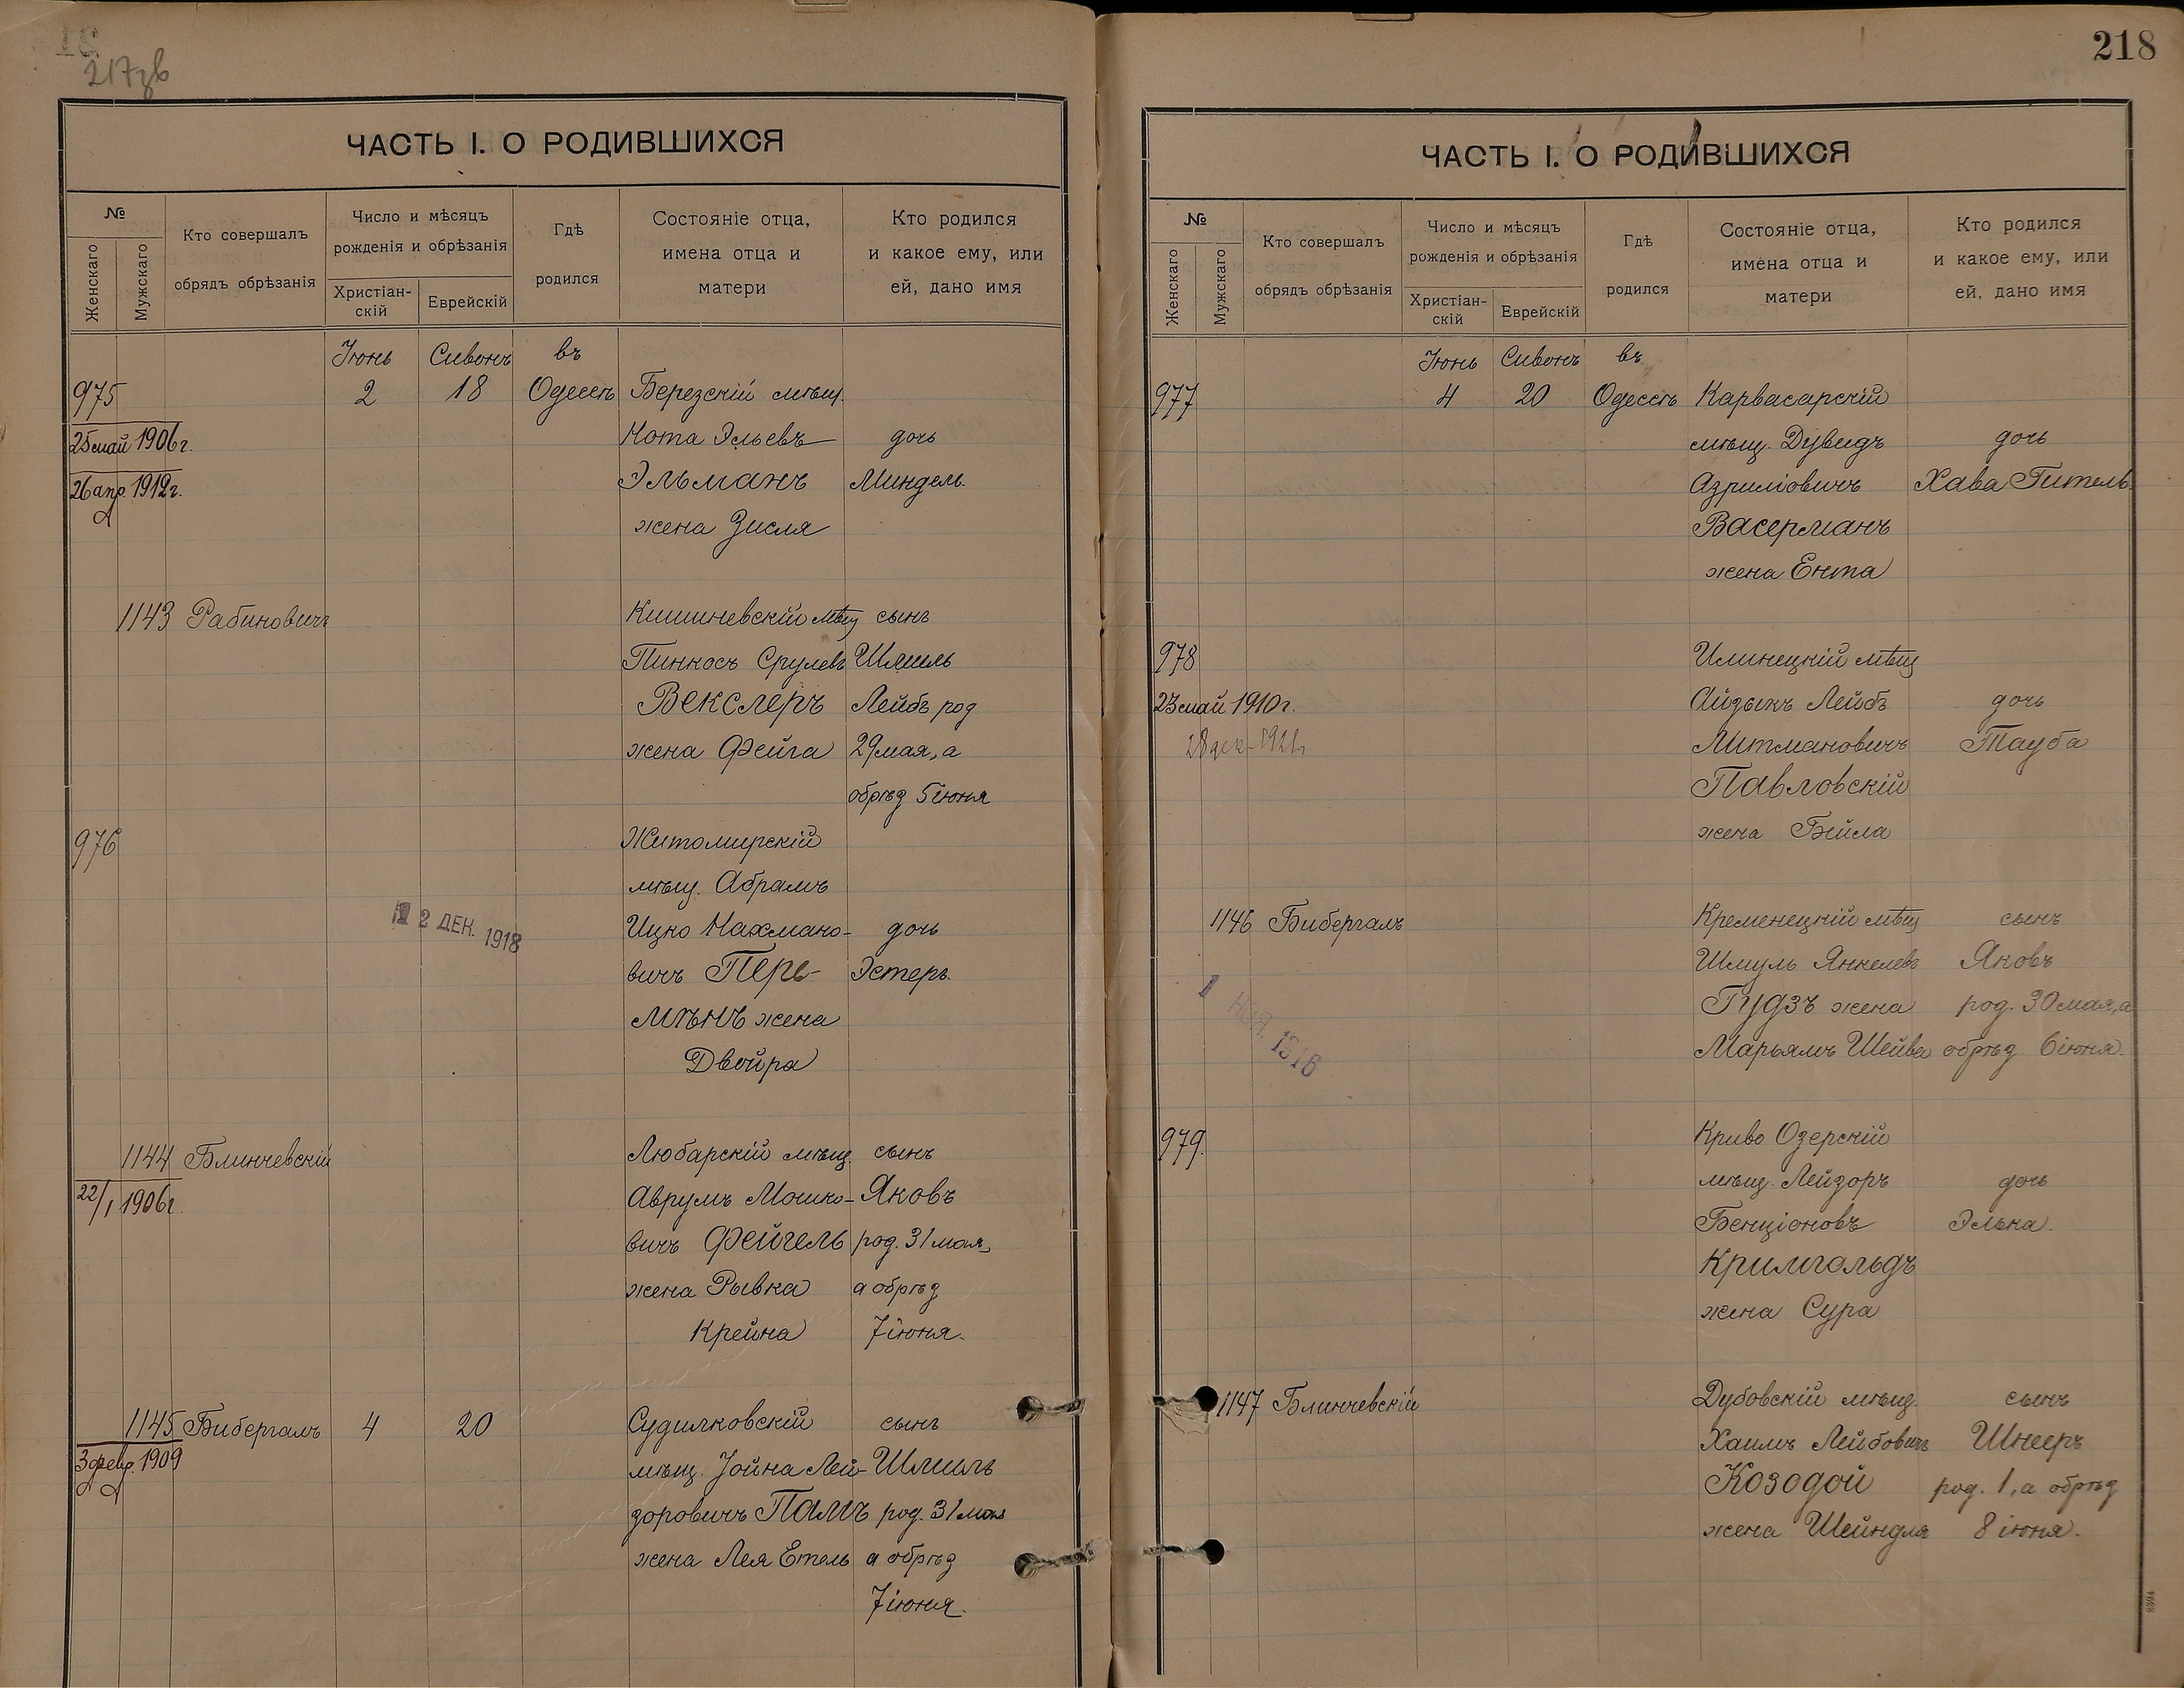 217зв
ЧАСТЬ I. О РОДИВШИХСЯ
№
Женскаго
Мужскаго
Кто совершалъ
обрядъ обрѣзанія
Число и мѣсяцъ
рожденія и обрѣзанія
Христіан-
скій
Еврейскій
Гдѣ
родился
Состояніе отца,
имена отца и
матери
Кто родился
и какое ему, или
ей, дано имя
Іюнь Сивонъ въ
975 2 18 Одессѣ Березскій мѣщ.
25 май 1906 г. Нота Эльевъ дочь
26 апр. 1912 г. Эльманъ Миндель.
жена Зисля
1143 Рабиновичъ Кишиневскій мѣщ сынъ
Пинкосъ Срулевъ Шмиль
Векслеръ Лейбъ род
жена Фейга 29 мая, а
обрѣз 5 іюня
976 Житомирскій
мѣщ. Абрамъ
12 ДЕК. 1918 Ицко Нахмано- дочь
вичъ Перь- Эстеръ.
мѣнъ жена
Двойра
1144 Блинчевскій Любарскій мѣщ. сынъ
22/I 1906 г. Аврумъ Мошко- Яковъ
вичъ Фейгель род. 31 мая,
жена Рывка а обрѣз
Крейна 7 іюня.
1145 Бибергалъ 4 20 Судилковскій сынъ
3 февр. 1909 мѣщ. Іойна Лей- Шмиль
зоровичъ Палъ род. 31 мая
жена Лея Етель а обрѣз
7 іюня.
218
ЧАСТЬ I. О РОДИВШИХСЯ
№
Женскаго
Мужскаго
Кто совершалъ
обрядъ обрѣзанія
Число и мѣсяцъ
рожденія и обрѣзанія
Христіан-
скій
Еврейскій
Гдѣ
родился
Состояніе отца,
имена отца и
матери
Кто родился
и какое ему, или
ей, дано имя
Іюнь Сивонъ въ
977 4 20 Одессѣ Карвасарскій
мѣщ. Дувидъ дочь
Азриліовичъ Хава Гитель.
Васерманъ
жена Ента
978 Илинецкій мѣщ
23 май 1910 г. Айзыкъ Лейбъ дочь
28 дек 1921 Литмановичъ Тауба
Павловскій
жена Бейла
1146 Бибергалъ Кременецкій мѣщ сынъ
Шмуль Янкелевъ Яковъ
1 НОЯ. 1916 Гудзъ жена род. 30 мая, а
Марьямъ Шейва обрѣз 6 іюня.
979. Криво Озерскій
мѣщ. Лейзоръ дочь
Бенціоновъ Элька.
Кримгольдъ
жена Сура
1147 Блинчевскій Дубовскій мѣщ. сынъ
Хаимъ Лейбовичъ Шнееръ
Козодой род. 1, а обрѣз
жена Шейндля 8 іюня.